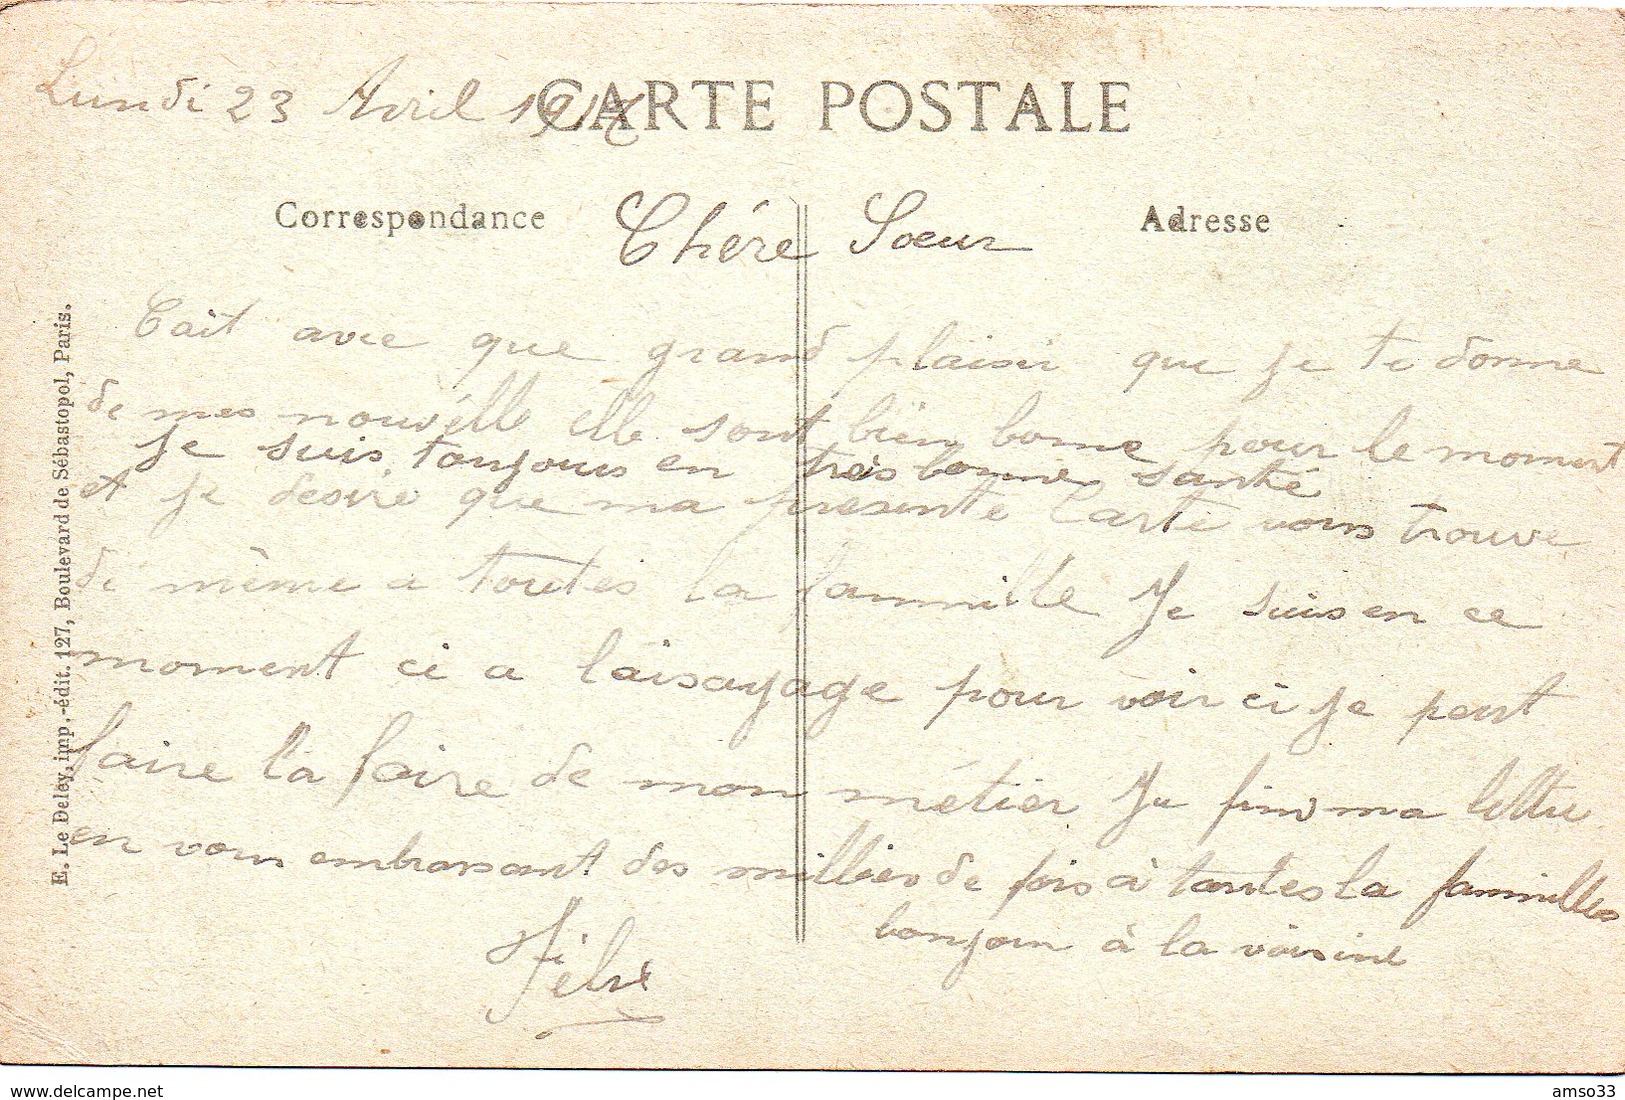 Lundi 23 Avril 1917
CARTE POSTALE
Correspondance
Adresse
Chére Soeur
Cait avec que grand plaisir que je te donne
de mes nouvélle elle sont bien bonne pour le moment
je suis toujours en tres bonne santé
et je desire que ma presente Carte vous trouve
de même a toutes la famnille Je suis en ce
moment ci a l'aisayage pour voir ci je peut
faire la faire de mon métier Je finis ma lettre
en vous embrassant des millier de fois à toutes la famnilles
bonjour à la voisine
E. Le Deley, imp.-édit. 127, Boulevard de Sébastopol, Paris.
www.delcampe.net
amso33